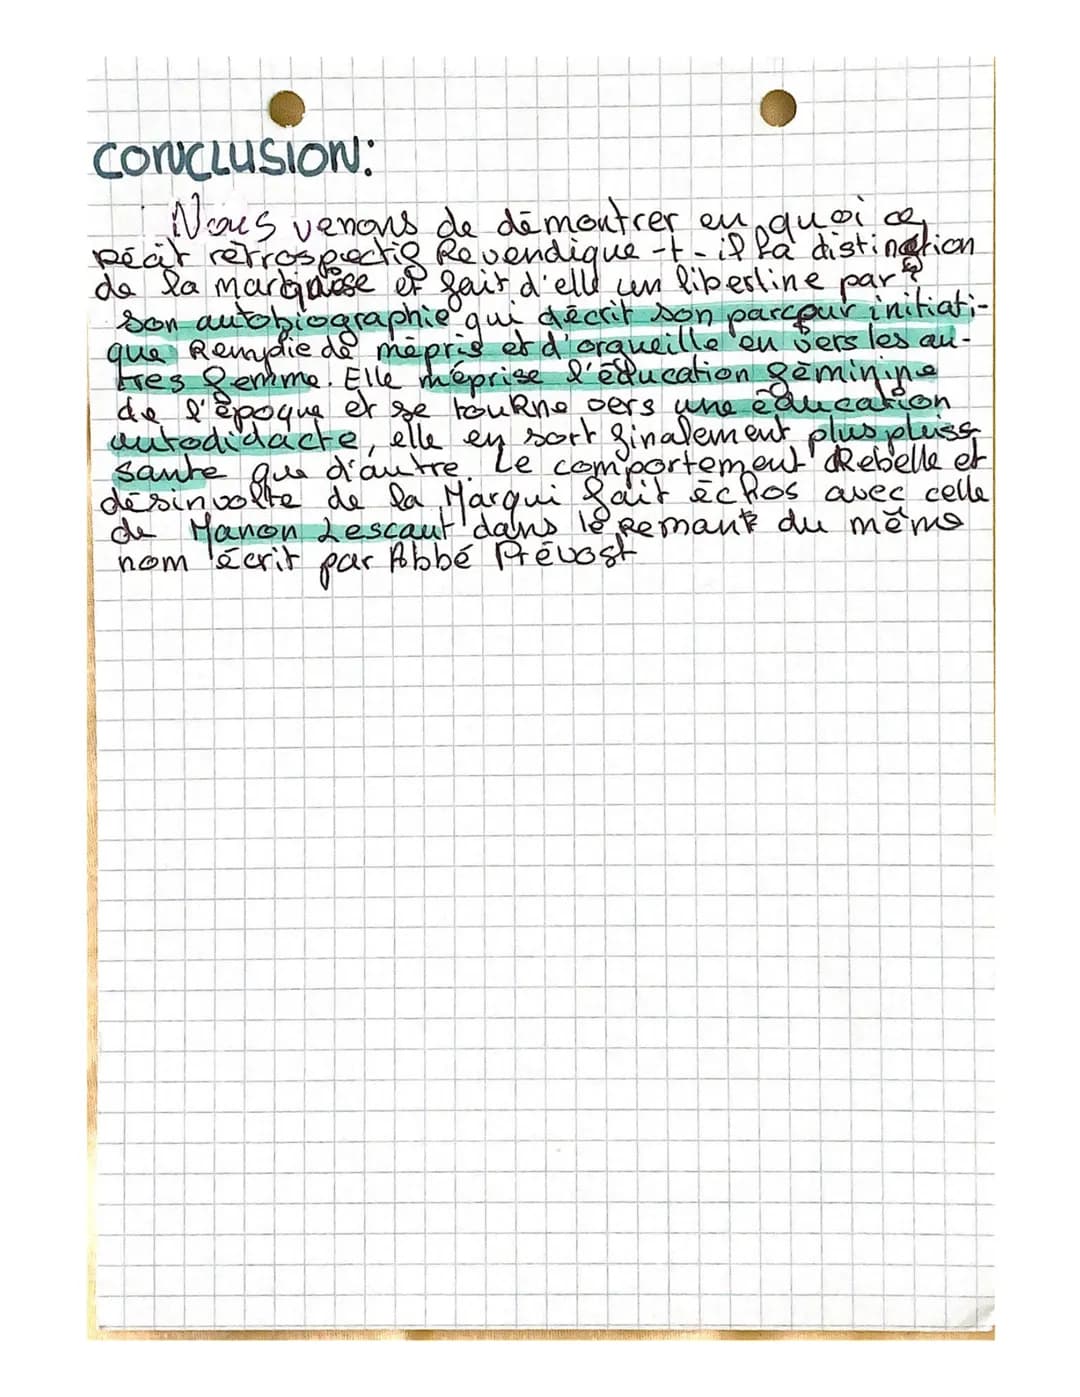 CONCLUSION:
Nous venons de démontrer en quoi ce
récit rétrospectif Revendique-t-il la distinction
de la marquise et fait d'elle un libertine par?
son autobiographie qui décrit son parcour initiati-
que Remplie de mépris et d'orgueille en vers les au-
tres femme. Elle méprise l'éducation féminine
de l'époque et se touRne vers une éducation
autodidacte, elle en sort finalement plus puiss
sante que d'autre. Le comportement Rebelle et
désinvolte de la Marqui fait échos avec celle
de Manon Lescaut dans le Romant du même
nom écrit par Abbé Prévost